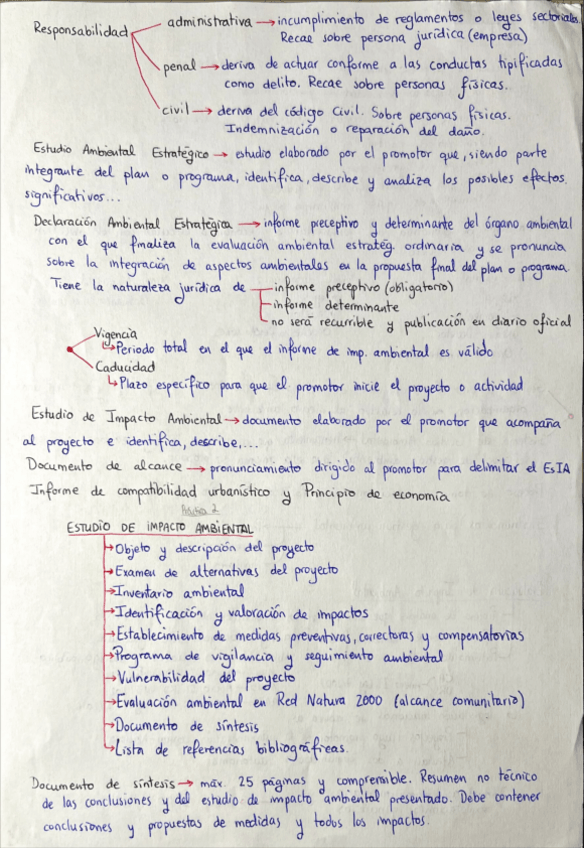 Responsabilidad administrativa → incumplimiento de reglamentos o leyes sectoriales.
Recae sobre persona jurídica (empresa)
penal → deriva de actuar conforme a las conductas tipificadas
como delito. Recae sobre personas físicas.
civil → deriva del código Civil. Sobre personas físicas.
Indemnización o reparación del daño.
Estudio Ambiental Estratégico → estudio elaborado por el promotor que, siendo parte
integrante del plan o programa, identifica, describe y analiza los posibles efectos
significativos...
Declaración Ambiental Estratégica → informe preceptivo y determinante del órgano ambiental
con el que finaliza la evaluación ambiental estratég. ordinaria y se pronuncia
sobre la integración de aspectos ambientales en la propuesta final del plan o programa.
Tiene la naturaleza jurídica de informe preceptivo (obligatorio)
informe determinante
no será recurrible y publicación en diario oficial
Vigencia
↳ Periodo total en el que el informe de imp. ambiental es válido
Caducidad
↳ Plazo específico para que el promotor inicie el proyecto o actividad
Estudio de Impacto Ambiental → documento elaborado por el promotor que acompaña
al proyecto e identifica, describe,....
Documento de alcance → pronunciamiento dirigido al promotor para delimitar el EsIA
Informe de compatibilidad urbanístico y Principio de economía
2
ESTUDIO DE IMPACTO AMBIENTAL
→ Objeto y descripción del proyecto
→ Examen de alternativas del proyecto
→ Inventario ambiental
→ Identificación y valoración de impactos
→ Establecimiento de medidas preventivas, correctoras y compensatorias
→ Programa de vigilancia y seguimiento ambiental
→ Vulnerabilidad del proyecto
→ Evaluación ambiental en Red Natura 2000 (alcance comunitario)
→ Documento de síntesis
↳ Lista de referencias bibliográficas.
Documento de síntesis → máx. 25 páginas y comprensible. Resumen no técnico
de las conclusiones y del estudio de impacto ambiental presentado. Debe contener
conclusiones y propuestas de medidas y todos los impactos.